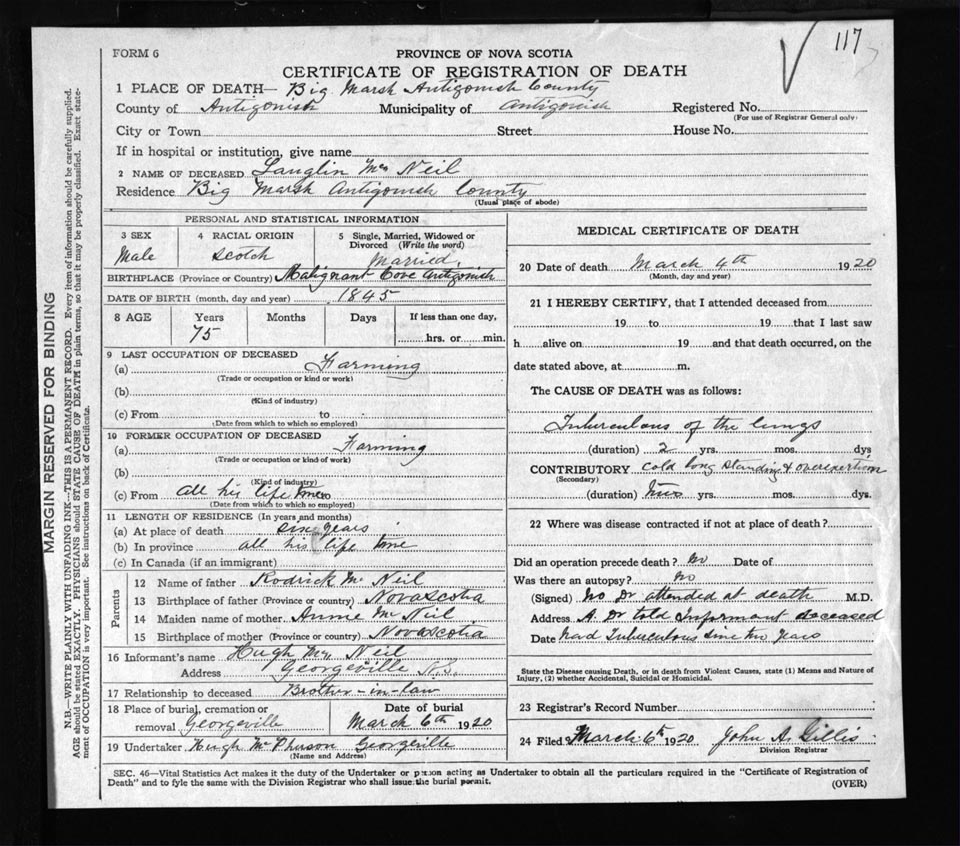 117
FORM 6
PROVINCE OF NOVA SCOTIA
CERTIFICATE OF REGISTRATION OF DEATH
1 PLACE OF DEATH— Big Marsh Antigonish County
County of Antigonish Municipality of Antigonish Registered No.
(For use of Registrar General only)
City or Town Street House No.
If in hospital or institution, give name
2 NAME OF DECEASED Lauglin Mc Neil
Residence Big Marsh Antigonish County
(Usual place of abode)
PERSONAL AND STATISTICAL INFORMATION
3 SEX 4 RACIAL ORIGIN 5 Single, Married, Widowed or Divorced (Write the word)
Male Scotch Married
BIRTHPLACE (Province or Country) Malignant Cove Antigonish
DATE OF BIRTH (month, day and year) 1845
8 AGE Years Months Days If less than one day,
75 hrs. or min.
9 LAST OCCUPATION OF DECEASED
(a) Farming
(Trade or occupation or kind or work)
(b)
(Kind of industry)
(c) From to
(Date from which to which so employed)
10 FORMER OCCUPATION OF DECEASED
(a) Farming
(Trade or occupation or kind of work)
(b)
(Kind of industry)
(c) From all his life time
(Date from which to which so employed)
11 LENGTH OF RESIDENCE (In years and months)
(a) At place of death six years
(b) In province all his life time
(c) In Canada (if an immigrant)
Parents
12 Name of father Rodrick Mc Neil
13 Birthplace of father (Province or country) Novascotia
14 Maiden name of mother Annie Mc Neil
15 Birthplace of mother (Province or country) Novascotia
16 Informant's name Hugh Mc Neil
Address Georgeville N.S.
17 Relationship to deceased Brother-in-law
18 Place of burial, cremation or removal Georgeville
Date of burial March 6th 1920
19 Undertaker Hugh Mc Phirson Georgeville
(Name and Address)
MEDICAL CERTIFICATE OF DEATH
20 Date of death March 4th 1920
(Month, day and year)
21 I HEREBY CERTIFY, that I attended deceased from
19 to 19 that I last saw
h alive on 19 and that death occurred, on the
date stated above, at m.
The CAUSE OF DEATH was as follows:
Tuberculous of the lungs
(duration) 2 yrs. mos. dys
CONTRIBUTORY cold long standing & overexertion
(Secondary)
(duration) two yrs. mos. dys.
22 Where was disease contracted if not at place of death?
Did an operation precede death? No Date of
Was there an autopsy? No
(Signed) No Dr attended at death M.D.
Address A Dr told Informant deceased
Date had Tuberculous since two years
State the Disease causing Death, or in death from Violent Causes, state (1) Means and Nature of
Injury, (2) whether Accidental, Suicidal or Homicidal.
23 Registrar's Record Number
24 Filed March 6th 1920 John A. Gillis
Division Registrar
SEC. 46—Vital Statistics Act makes it the duty of the Undertaker or person acting as Undertaker to obtain all the particulars required in the "Certificate of Registration of
Death" and to fyle the same with the Division Registrar who shall issue the burial permit.
(OVER)
MARGIN RESERVED FOR BINDING
N.B.—WRITE PLAINLY WITH UNFADING INK—THIS IS A PERMANENT RECORD. Every item of information should be carefully supplied.
AGE should be stated EXACTLY. PHYSICIANS should STATE CAUSE OF DEATH in plain terms, so that it may be properly classified. Exact state-
ment of OCCUPATION is very important. See instructions on back of Certificate.